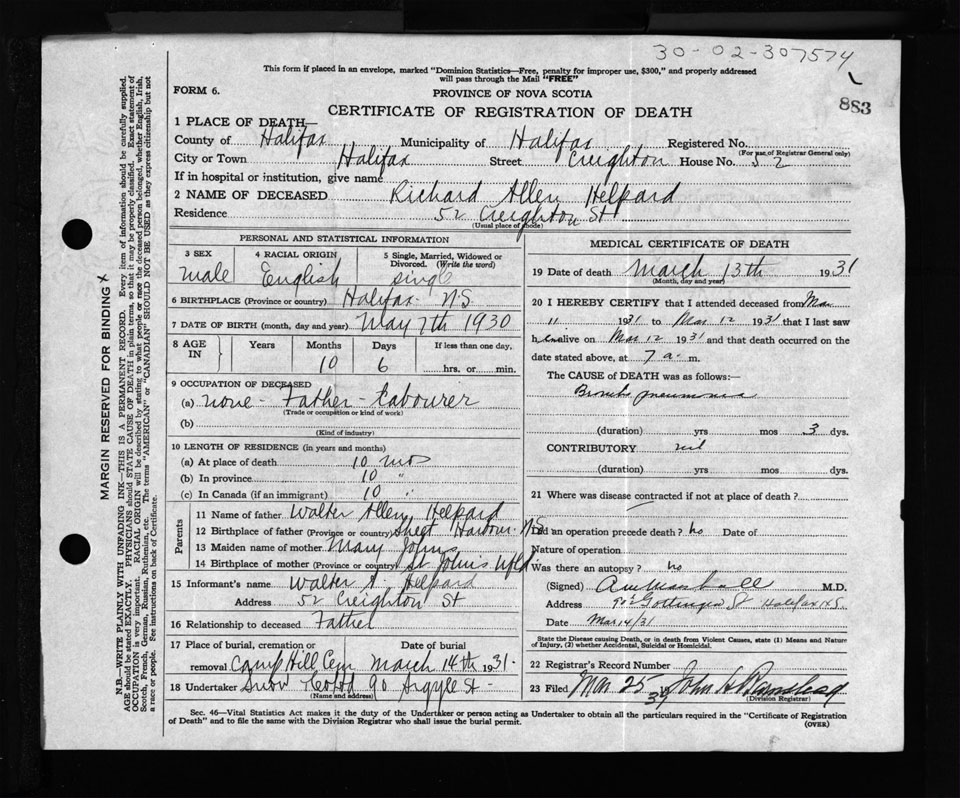 30-02-307574
This form if placed in an envelope, marked "Dominion Statistics—Free, penalty for improper use, $300," and properly addressed
will pass through the Mail "FREE"
FORM 6.
PROVINCE OF NOVA SCOTIA
883
CERTIFICATE OF REGISTRATION OF DEATH
1 PLACE OF DEATH—
County of Halifax Municipality of Halifax Registered No.
(For use of Registrar General only)
City or Town Halifax Street Creighton House No. 52
If in hospital or institution, give name
2 NAME OF DECEASED Richard Allen Helpard
Residence 52 Creighton St
(Usual place of abode)
PERSONAL AND STATISTICAL INFORMATION
3 SEX 4 RACIAL ORIGIN 5 Single, Married, Widowed or
Divorced. (Write the word)
male English single
6 BIRTHPLACE (Province or country) Halifax N.S.
7 DATE OF BIRTH (month, day and year) May 7th 1930
8 AGE IN Years Months Days If less than one day.
10 6 hrs. or min.
9 OCCUPATION OF DECEASED
(a) none - Father - Labourer
(Trade or occupation or kind of work)
(b)
(Kind of industry)
10 LENGTH OF RESIDENCE (in years and months)
(a) At place of death 10 mos
(b) In province 10 "
(c) In Canada (if an immigrant) 10 "
Parents
11 Name of father Walter Allen Helpard
12 Birthplace of father (Province or country) Sheet Harbour N.S
13 Maiden name of mother Mary Johns
14 Birthplace of mother (Province or country) St Johns Nfld
15 Informant's name Walter A. Helpard
Address 52 Creighton St
16 Relationship to deceased Father
17 Place of burial, cremation or Date of burial
removal Camp Hill Cem March 14th 1931
18 Undertaker Snow Co Ltd 90 Argyle St
(Name and address)
MEDICAL CERTIFICATE OF DEATH
19 Date of death March 13th 1931
(Month, day and year)
20 I HEREBY CERTIFY that I attended deceased from Mar
11 1931 to Mar 12 1931 that I last saw
him alive on Mar 12 1931 and that death occurred on the
date stated above, at 7 a. m.
The CAUSE of DEATH was as follows:—
Broncho pneumonia
(duration) yrs mos 3 dys.
CONTRIBUTORY nil
(duration) yrs mos dys.
21 Where was disease contracted if not at place of death?
Did an operation precede death? no Date of
Nature of operation
Was there an autopsy? no
(Signed) Marshall M.D.
Address Gottingen St Halifax N.S.
Date Mar 14/31
State the Disease causing Death, or in death from Violent Causes, state (1) Means and Nature
of Injury, (2) whether Accidental, Suicidal or Homicidal.
22 Registrar's Record Number
23 Filed Mar 25 John H
(Division Registrar)
Sec. 46—Vital Statistics Act makes it the duty of the Undertaker or person acting as Undertaker to obtain all the particulars required in the "Certificate of Registration
of Death" and to file the same with the Division Registrar who shall issue the burial permit.
(OVER)
MARGIN RESERVED FOR BINDING
N.B.—WRITE PLAINLY WITH UNFADING INK—THIS IS A PERMANENT RECORD. Every item of information should be carefully supplied.
AGE should be stated EXACTLY. PHYSICIANS should STATE CAUSE OF DEATH in plain terms, so that it may be properly classified. Exact statement of
OCCUPATION is very important. RACIAL ORIGIN will be described by stating to what people or race the deceased person belonged, whether English, Irish,
Scotch, French, German, Russian, Ruthenian, etc. The terms "AMERICAN" or "CANADIAN" SHOULD NOT BE USED as they express citizenship but not
a race or people. See instructions on back of Certificate.